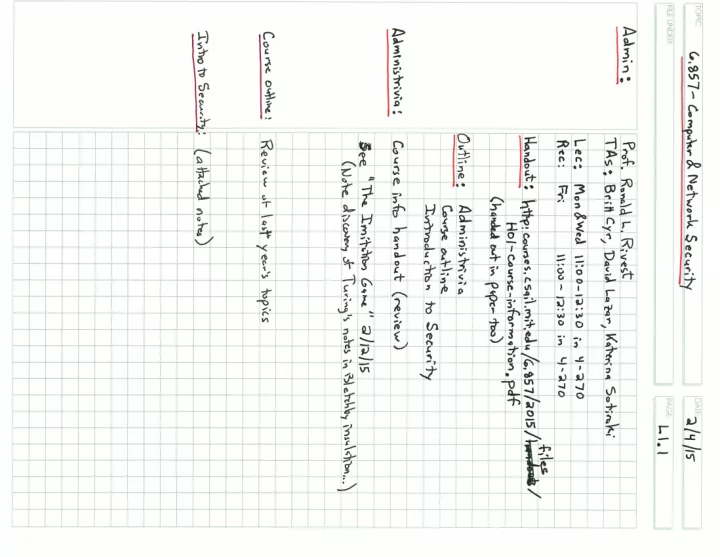 TOPIC: 6.857 - Computer & Network Security
DATE: 2/4/15
FILE UNDER:
PAGE: L1.1
Admin: Prof. Ronald L. Rivest
TAs: Britt Cyr, David Lazar, Katerina Sotiraki
Lec: Mon & Wed 11:00-12:30 in 4-270
Rec: Fri 11:00-12:30 in 4-270
Handout: http:courses.csail.mit.edu/6.857/2015/files/
H01-course-information.pdf
(handed out in paper too)
Outline: Administrivia
Course outline
Introduction to Security
Administrivia: Course info handout (review)
See "The Imitation Game" 2/12/15
(Note discovery of Turing's notes in Bletchley insulation...)
Course outline: Review of last year's topics
Intro to Security: (attached notes)